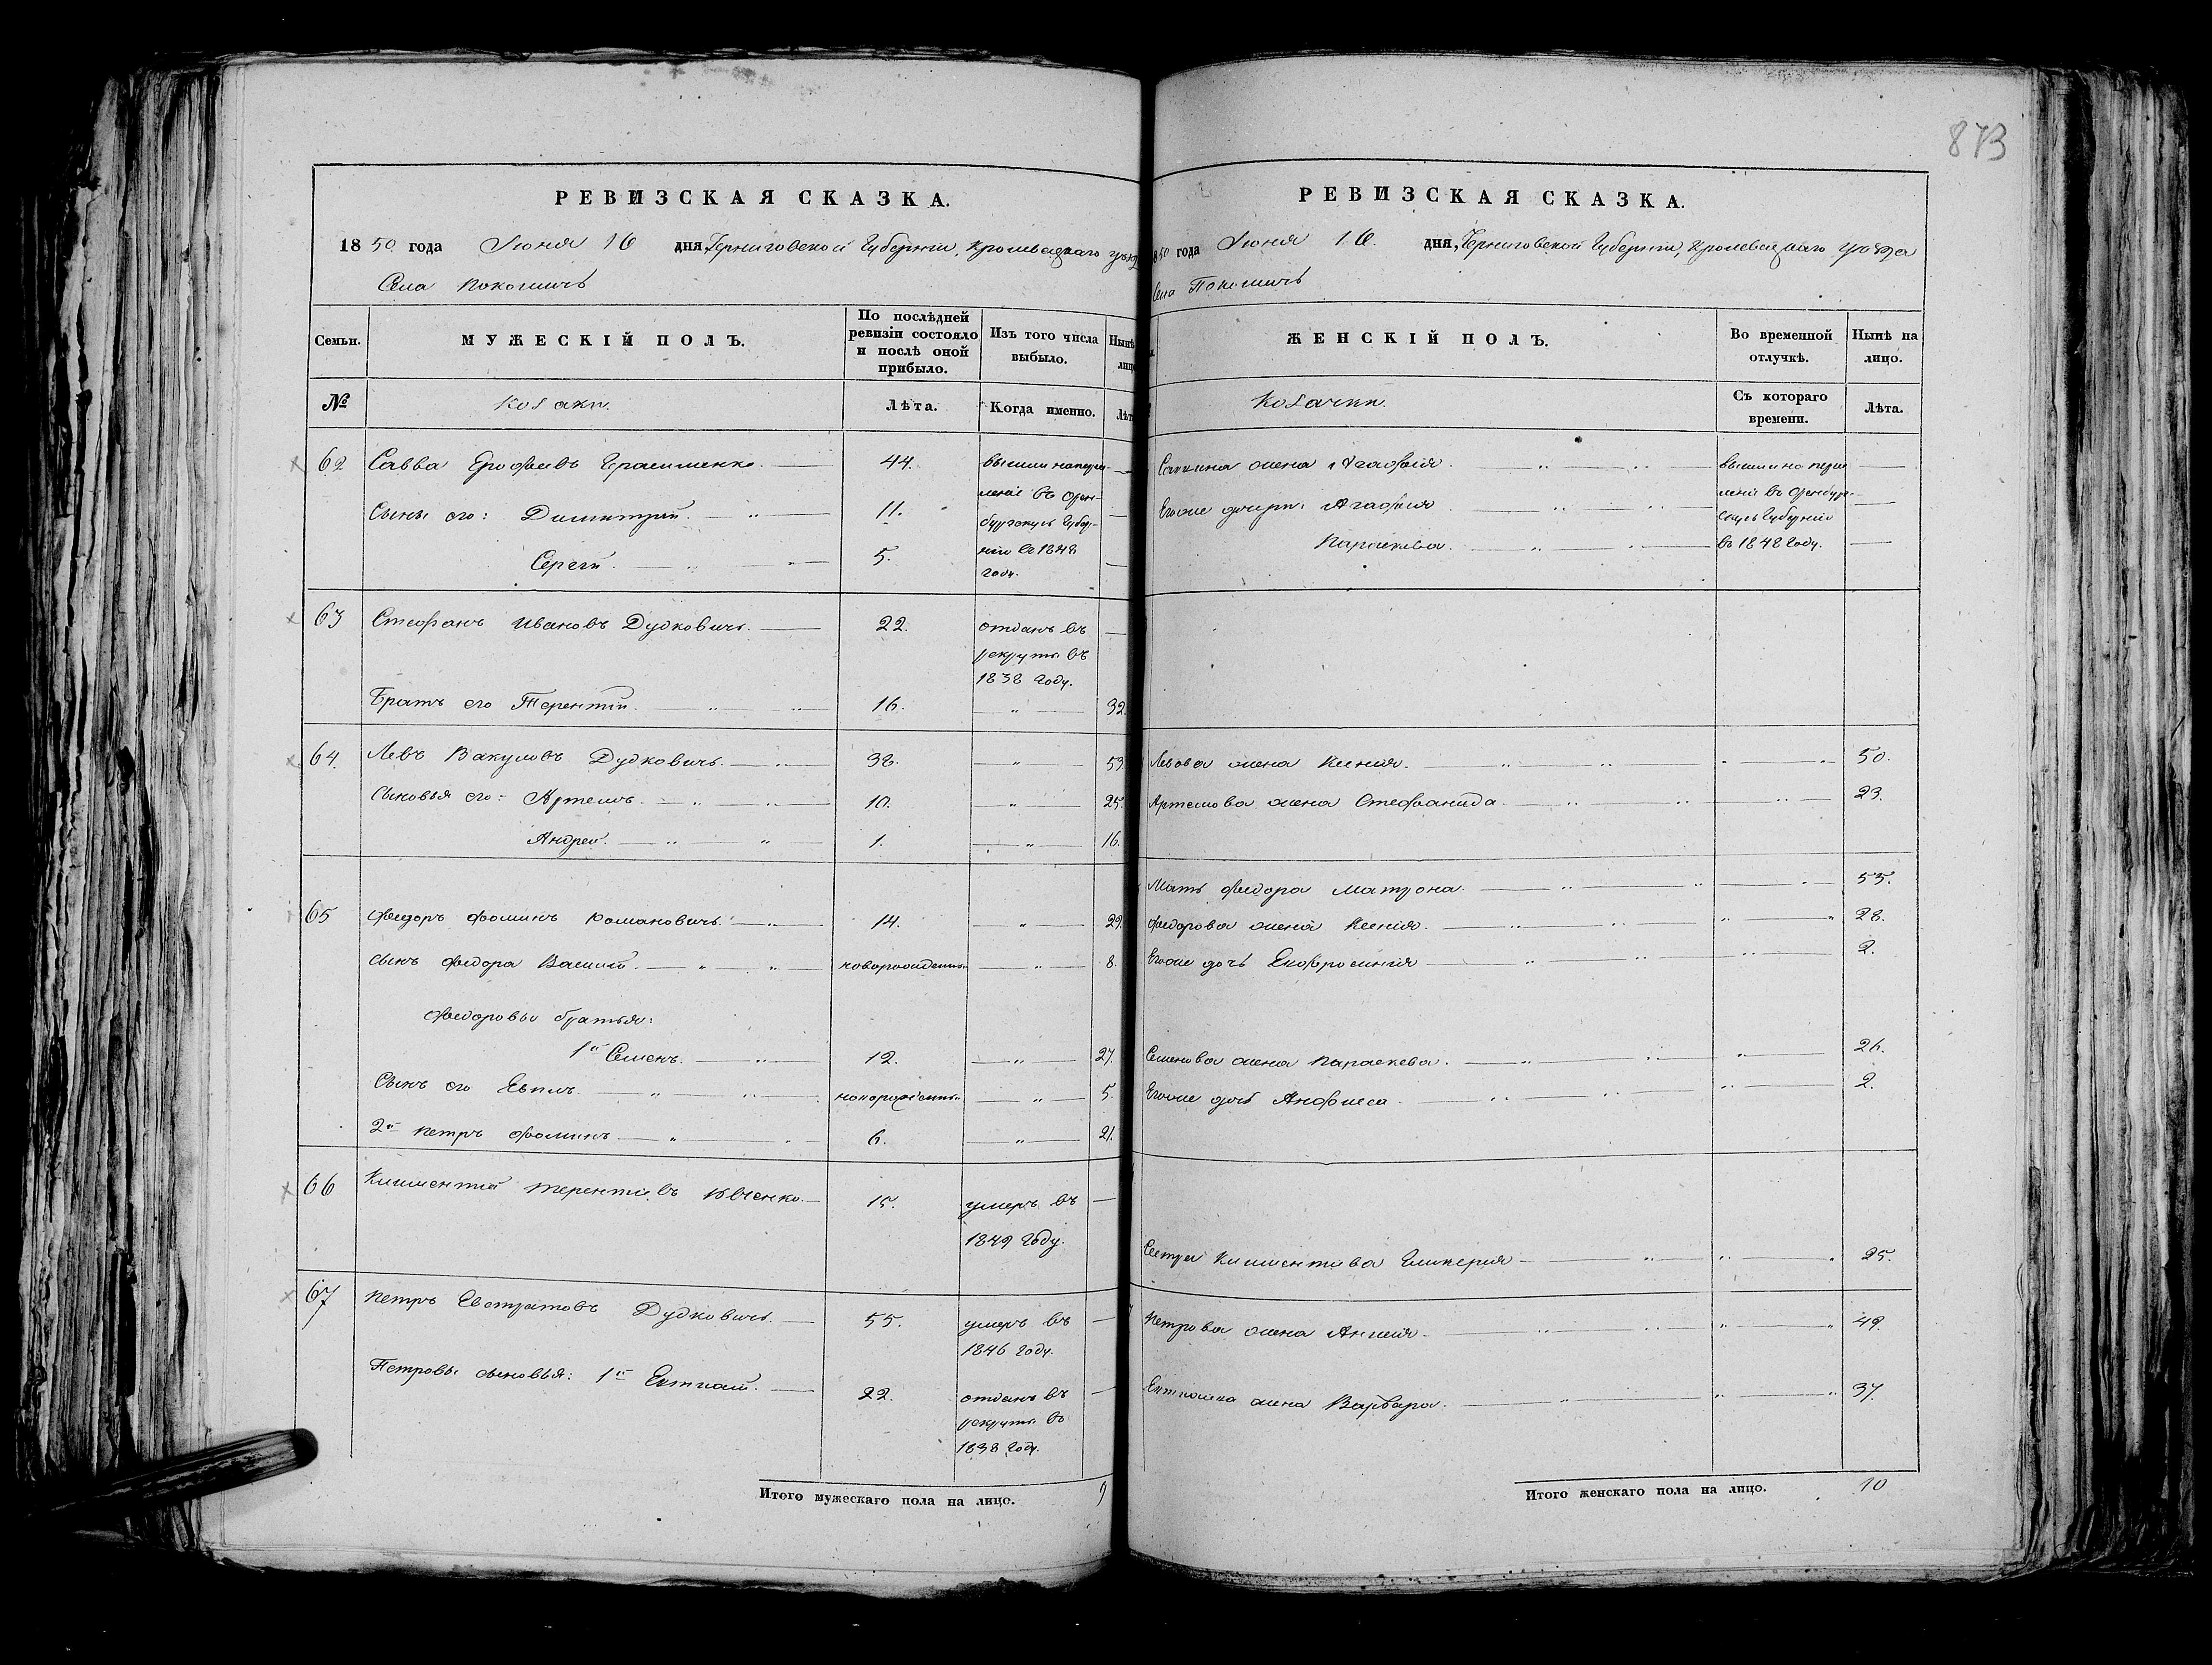 873
РЕВИЗСКАЯ СКАЗКА.
1850 года Июня 16 дня, Черниговской Губерніи, Кролевецкаго уѣзда
Села Покошичь
Семьи. МУЖЕСКІЙ ПОЛЪ. По послѣдней ревизіи состояло и послѣ оной прибыло. Изъ того числа выбыло. Нынѣ лицо
№ Козаки. Лѣта. Когда именно. Лѣт
62 Савва Ерофѣевъ Герасименко. 44. вышли на пересе-
леніе въ Орен-
Сыны его: Димитрій. 11. бургскую Губер-
нію въ 1848
Сергѣй. 5. году.
63 Стефанъ Ивановъ Дудковичъ. 22. отданъ въ
рекруты въ
1838 году.
Братъ его Терентій. 16. 32.
64. Левъ Вакуловъ Дудковичъ. 38. 53
Сыновья его: Артемъ. 10. 25.
Андрей. 1. 16.
65 Федоръ Фоминъ Романовичъ. 14. 29.
Сынъ Федора Василій. новорожденный 8.
Федоровы братья:
1й Семенъ. 12. 27.
Сынъ его Евтихъ новорожденный 5.
2й Петръ Фоминъ 6. 21.
66 Климентій Терентіевъ Ивченко. 15. умеръ въ
1849 году.
67 Петръ Евстратовъ Дудковичъ. 55. умеръ въ
1846 году.
Петровы сыновья: 1й 22. отданъ въ
рекруты въ
1838 году.
Итого мужескаго пола на лицо. 9
РЕВИЗСКАЯ СКАЗКА.
850 года Июня 16. дня, Черниговской Губерніи, Кролевецкаго уѣзда
Села Покошичь
ЖЕНСКІЙ ПОЛЪ. Во временной отлучкѣ. Нынѣ на лицо.
Козачки. Съ котораго времени. Лѣта.
Саввина жена Агафія. вышли на пересе
леніе въ Оренбург-
Егоже дочери: Агафія скую Губернію
Параскева. въ 1848 году.
Львова жена Ксенія. 50.
Артемова жена Стефанида. 23.
Мать Федора Матрона. 55.
Федорова жена Ксенія. 28.
Егоже дочь Ефросинія 2.
Семенова жена Параскева. 26.
Егоже дочь Анфиса. 2.
Сестра Климентіева Гликерія 25.
Петрова жена 49.
жена Варвара. 37.
Итого женскаго пола на лицо. 10